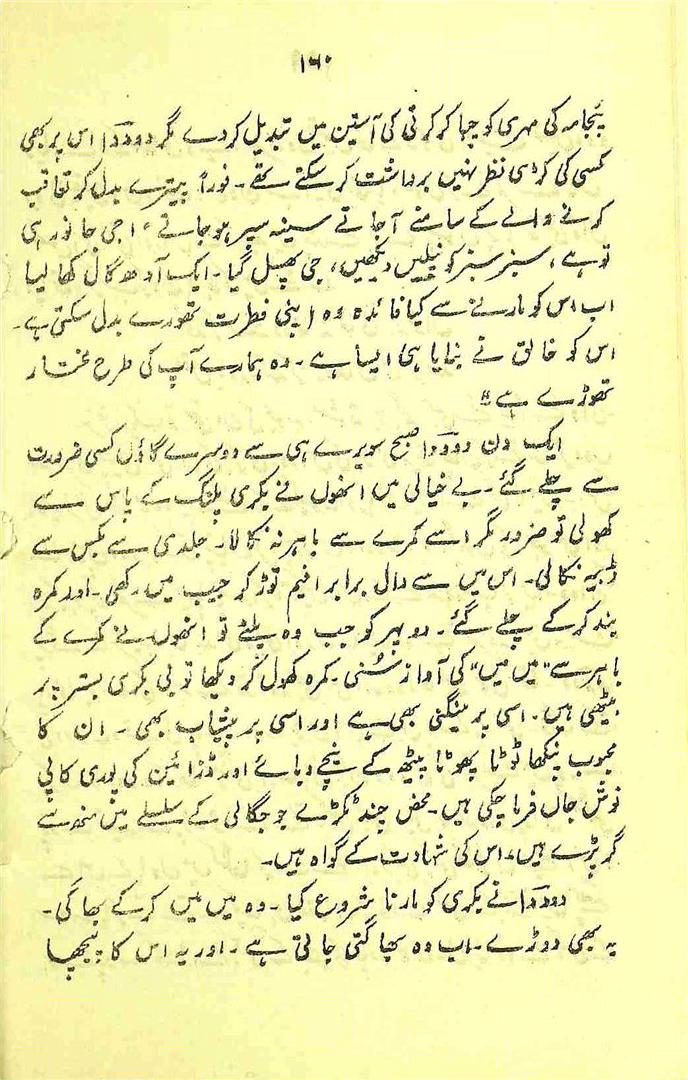 ۱۶۰
پئجامہ کی مہری کو چبا کر کرتی کی آستین میں تبدیل کر دے مگر دودوا اس پر بھی
کسی کی کڑی نظر نہیں برداشت کر سکتے تھے۔ فوراً پینترے بدل کر تعاقب
کرنے والے کے سامنے آجاتے سینہ سپر ہو جاتے "اجی جانور ہی
تو ہے، سبز سبز کونپلیں دیکھیں، جی پھسل گیا۔ ایک آدھ گال کھا لیا
اب اس کو مارنے سے کیا فائدہ وہ اپنی فطرت تھوڑے بدل سکتی ہے۔
اس کو خالق نے بنایا ہی ایسا ہے۔ وہ ہمارے آپ کی طرح مختار
تھوڑے ہے"
ایک دن دودوا صبح سویرے ہی سے دوسرے گاؤں کسی ضرورت
سے چلے گئے۔ بے خیالی میں انھوں نے بکری پلنگ کے پاس سے
کھولی تو ضرور مگر اسے کمرے سے باہر نہ نکالا۔ جلدی سے بکس سے
ڈبیہ نکالی۔ اس میں سے دال برابر افیم توڑ کر جیب میں رکھی۔ اور کمرہ
بند کر کے چلے گئے۔ دوپہر کو جب وہ پلٹے تو انھوں نے کمرے کے
باہر سے "میں میں" کی آواز سُنی۔ کمرہ کھول کر دیکھا تو بی بکری بستر پر
بیٹھی ہیں۔ اسی پر مینگنی بھی ہے اور اسی پر پیشاب بھی۔ ان کا
محبوب پنکھا ٹوٹا پھوٹا پیٹھ کے نیچے دبائے اور ڈزائین کی پوری کاپی
نوش جاں فرما چکی ہیں۔ محض چند ٹکڑے جو جگالی کے سلسلے میں منھ سے
گر پڑے ہیں، اس کی شہادت کے گواہ ہیں۔
دودوا نے بکری کو مارنا شروع کیا۔ وہ میں میں کر کے بھاگی۔
یہ بھی دوڑے۔ اب وہ بھاگتی جاتی ہے۔ اور یہ اس کا پیچھا